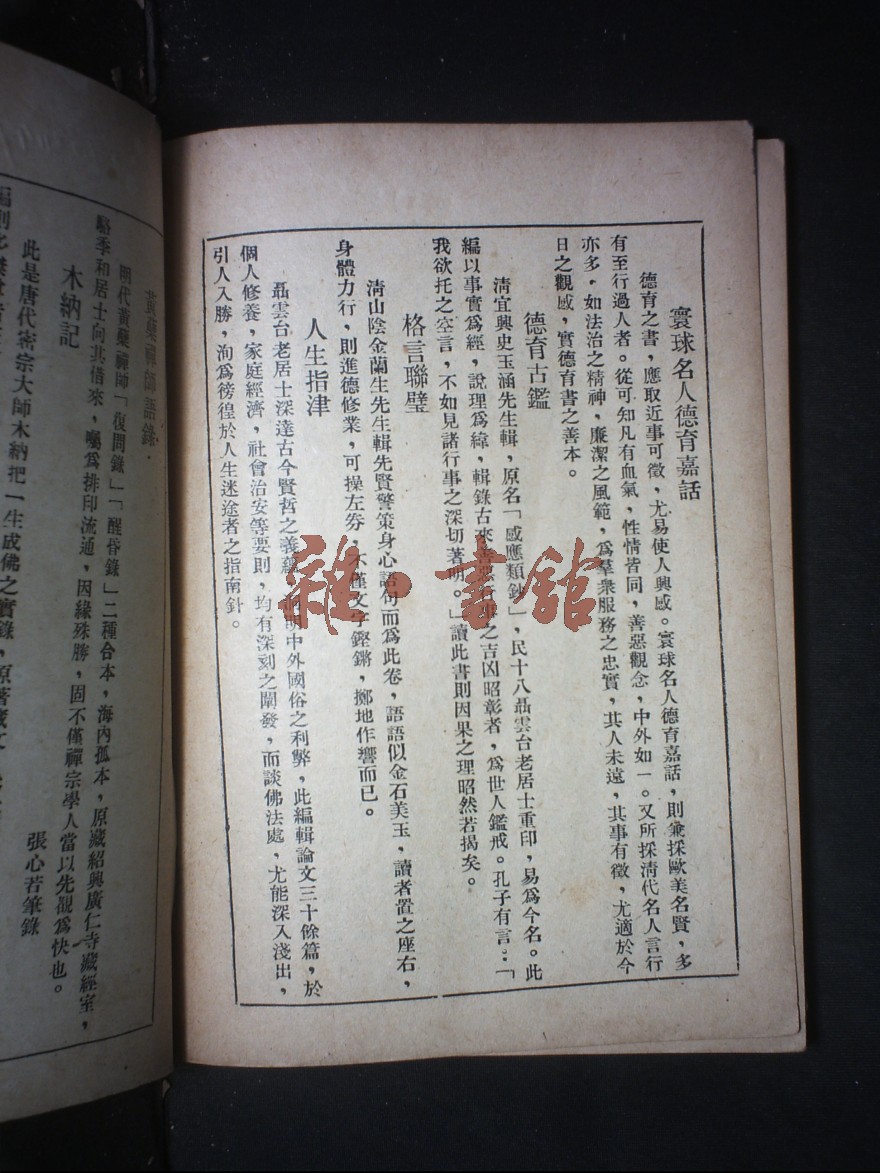 寰球名人德育嘉話
德育之書，應取近事可徵，尤易使人興感。寰球名人德育嘉話，則兼採歐美名賢，多
有至行過人者。從可知凡有血氣，性情皆同，善惡觀念，中外如一。又所採清代名人言行
亦多，如法治之精神，廉潔之風範，爲羣衆服務之忠實，其人未遠，其事有徵，尤適於今
日之觀感，實德育書之善本。
德育古鑑
清宜興史玉涵先生輯，原名「感應類鈔」，民十八聶雲台老居士重印，易爲今名。此
編以事實爲經，說理爲緯，輯錄古來善惡行事之吉凶昭彰者，爲世人鑑戒。孔子有言：「
我欲托之空言，不如見諸行事之深切著明。」讀此書則因果之理昭然若揭矣。
格言聯璧
清山陰金蘭生先生輯先賢警策身心語句而爲此卷，語語似金石美玉，讀者置之座右，
身體力行，則進德修業，可操左券，不僅文字鏗鏘，擲地作響而已。
人生指津
聶雲台老居士深達古今賢哲之義蘊，洞明中外國俗之利弊，此編輯論文三十餘篇，於
個人修養，家庭經濟，社會治安等要則，均有深刻之闡發，而談佛法處，尤能深入淺出，
引人入勝，洵爲徬徨於人生迷途者之指南針。
雜·書館
黃蘗禪師語錄
明代黃蘗禪師「復問錄」「醒昏錄」二種合本，海內孤本，原藏紹興廣仁寺藏經室，
駱季和居士向其借來，囑爲排印流通，因緣殊勝，固不僅禪宗學人當以先覩爲快也。
木納記
張心若筆錄
此是唐代密宗大師木納把一生成佛之實錄，原著藏文